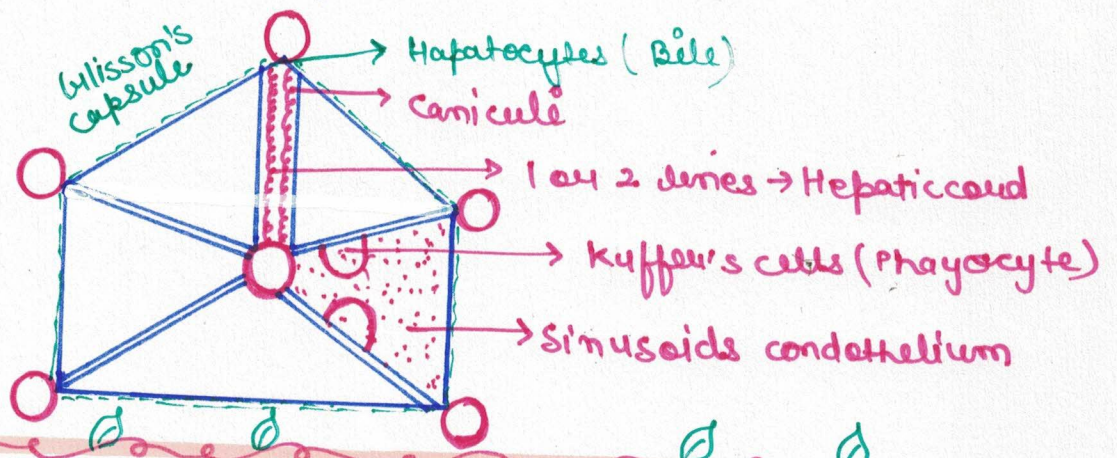 Glisson's
capsule
Hapatocytes (Bile)
Canicule
1 or 2 lines → Hepatic cord
Kuffer's cells (Phayocyte)
Sinusoids condothelium